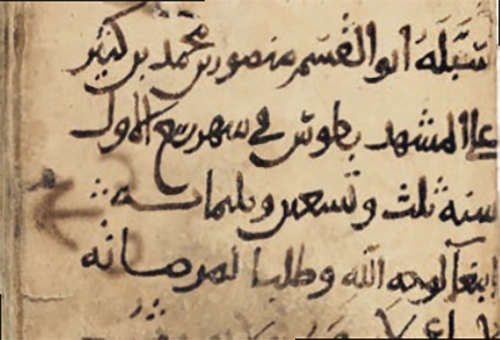 سبله ابو القسم منصور بن محمد بن كثير
على المشهد بطوس في شهر ربيع الاول
سنة ثلث وتسعين وثلمائة
ابتغآ لوجه الله وطلبا لمرضاته